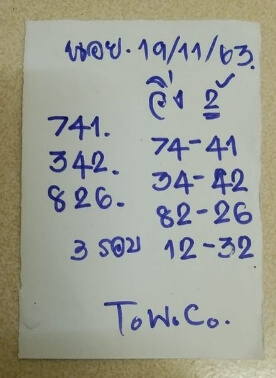 หนอย. 19/11/63.
วิ่ง 2
741. 74-41
342. 34-42
826. 82-26
3 รอบ 12-32
T.W.Co.